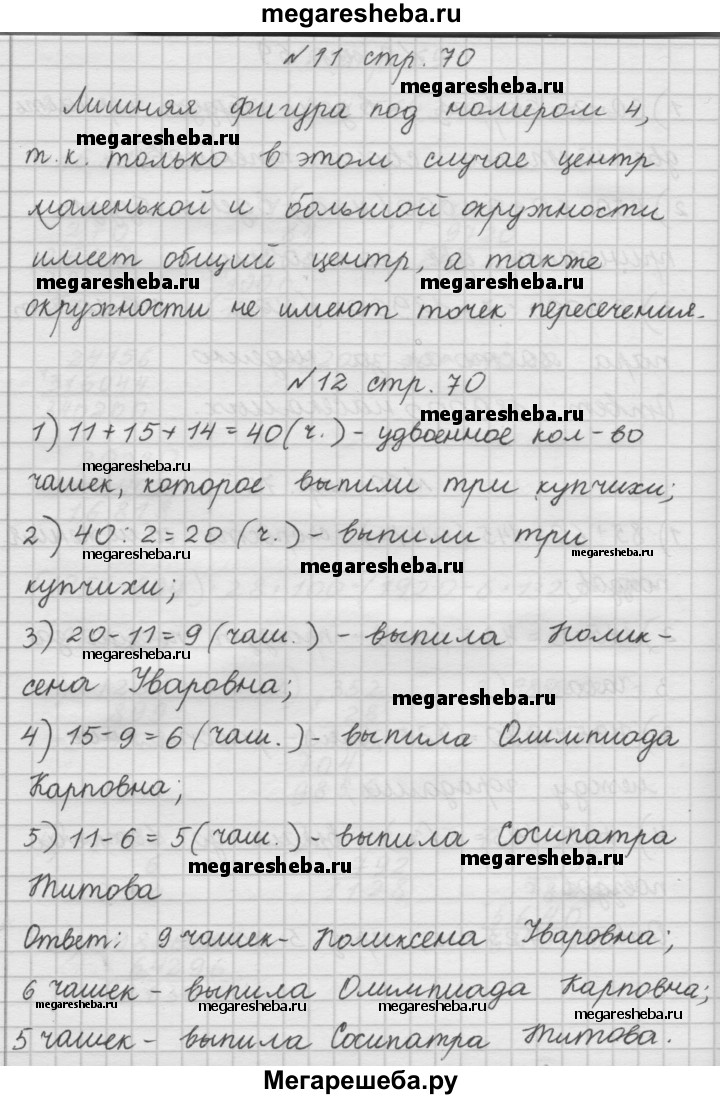 megaresheba.ru
№11 стр. 70
megaresheba.ru
Лишняя фигура под номером 4,
megaresheba.ru
т.к. только в этом случае центр
маленькой и большой окружности
имеет общий центр, а также
megaresheba.ru megaresheba.ru
окружности не имеют точек пересечения.
№12 стр. 70
megaresheba.ru
1) 11+15+14=40(ч.)- удвоенное кол-во
megaresheba.ru
чашек, которое выпили три купчихи;
2) 40:2=20 (ч.)- выпили три
megaresheba.ru megaresheba.ru megaresheba.ru
купчихи;
3) 20-11=9(чаш.) - выпила Полик-
megaresheba.ru
сена Уваровна;
megaresheba.ru
4) 15-9=6(чаш.)- выпила Олимпиада
Карповна;
5) 11-6=5(чаш.)- выпила Сосипатра
megaresheba.ru megaresheba.ru
Титова
Ответ: 9 чашек- Поликсена Уваровна;
6 чашек - выпила Олимпиада Карповна;
megaresheba.ru megaresheba.ru megaresheba.ru
5 чашек - выпила Сосипатра Титова.
Мегарешеба.ру